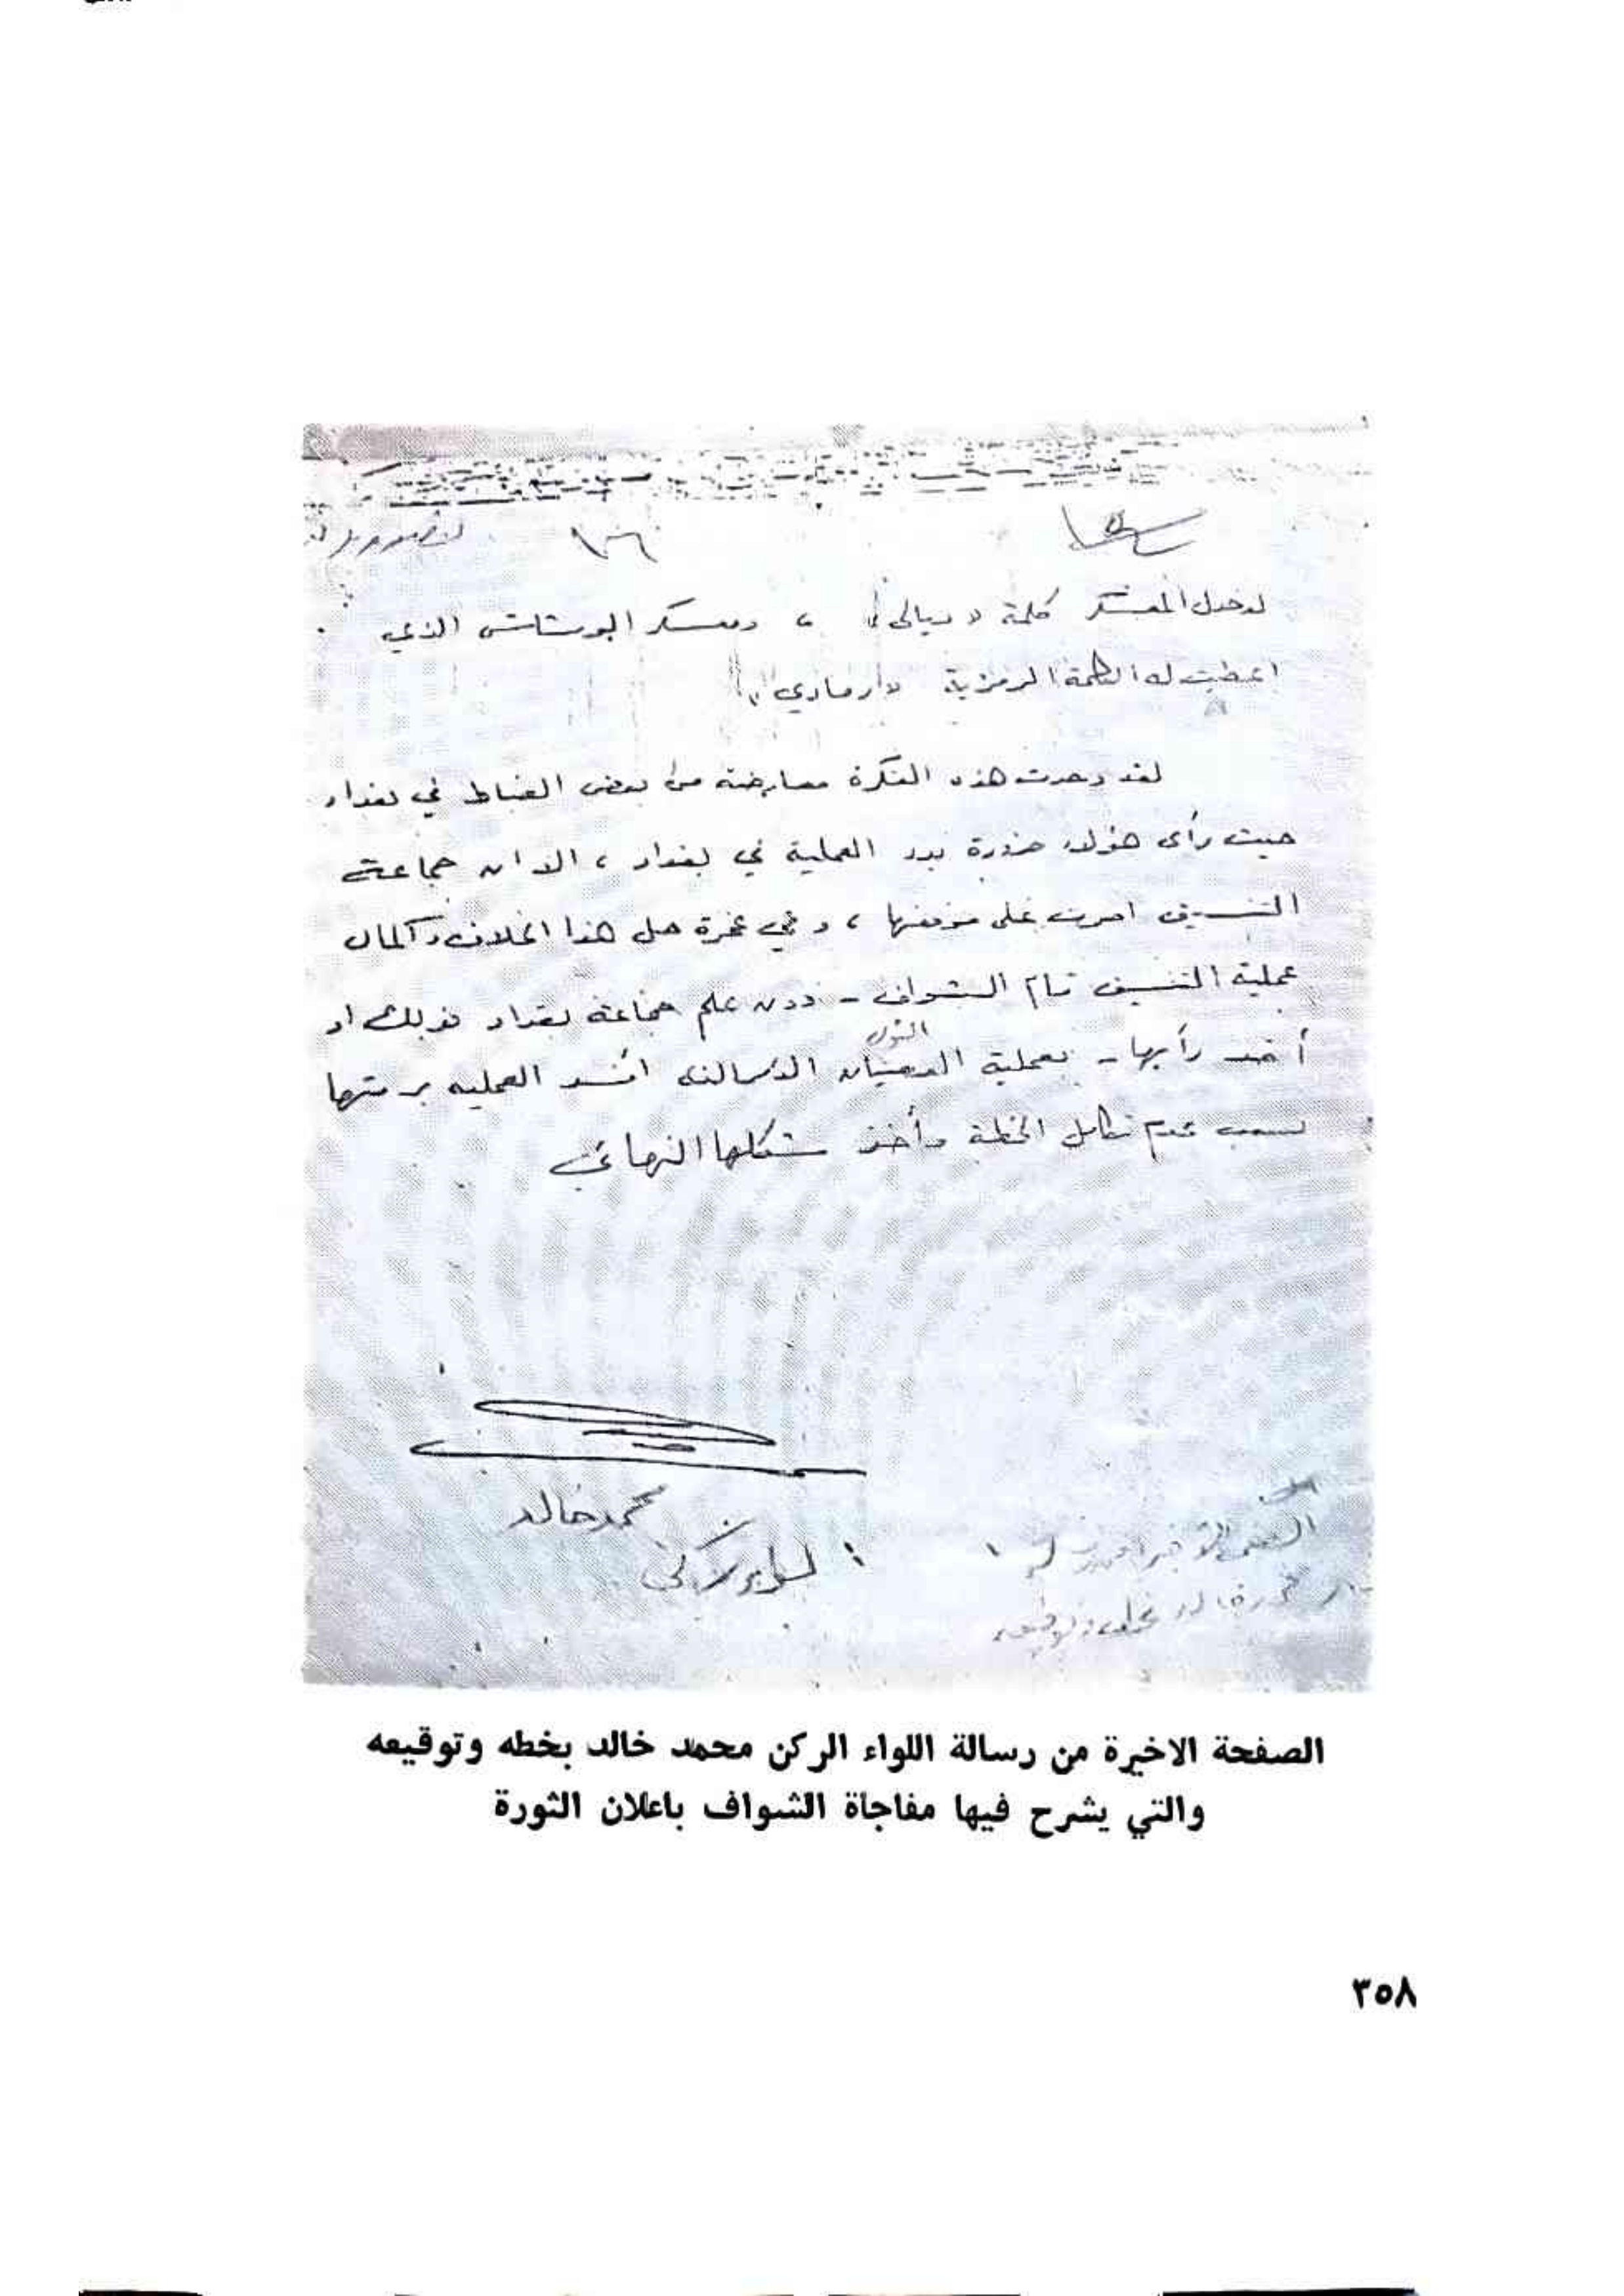 لدخول المعسكر كلمة « ديالى » ، ومعسكر الوشاش الذي
اعطيت له الكلمة الرمزية « رمادي »
لقد وجدت هذه الفكرة معارضة من بعض الضباط في بغداد
حيث رأى هؤلاء ضرورة بدء العملية في بغداد ، الا ان جماعة
التنسيق اصرت على موقفها ، وفي غمرة حل هذا الخلاف واكمال
عملية التنسيق قام الشواف - دون علم جماعة بغداد بذلك او
أخذ رأيها - بعملية العصيان الثوري الأمر الذي افسد العملية برمتها
بسبب عدم تكامل الخطة وأخذ شكلها النهائي
محمد خالد
اللواء الركن
الصفحة الاخيرة من رسالة اللواء الركن محمد خالد بخطه وتوقيعه
والتي يشرح فيها مفاجاة الشواف باعلان الثورة
٣٥٨